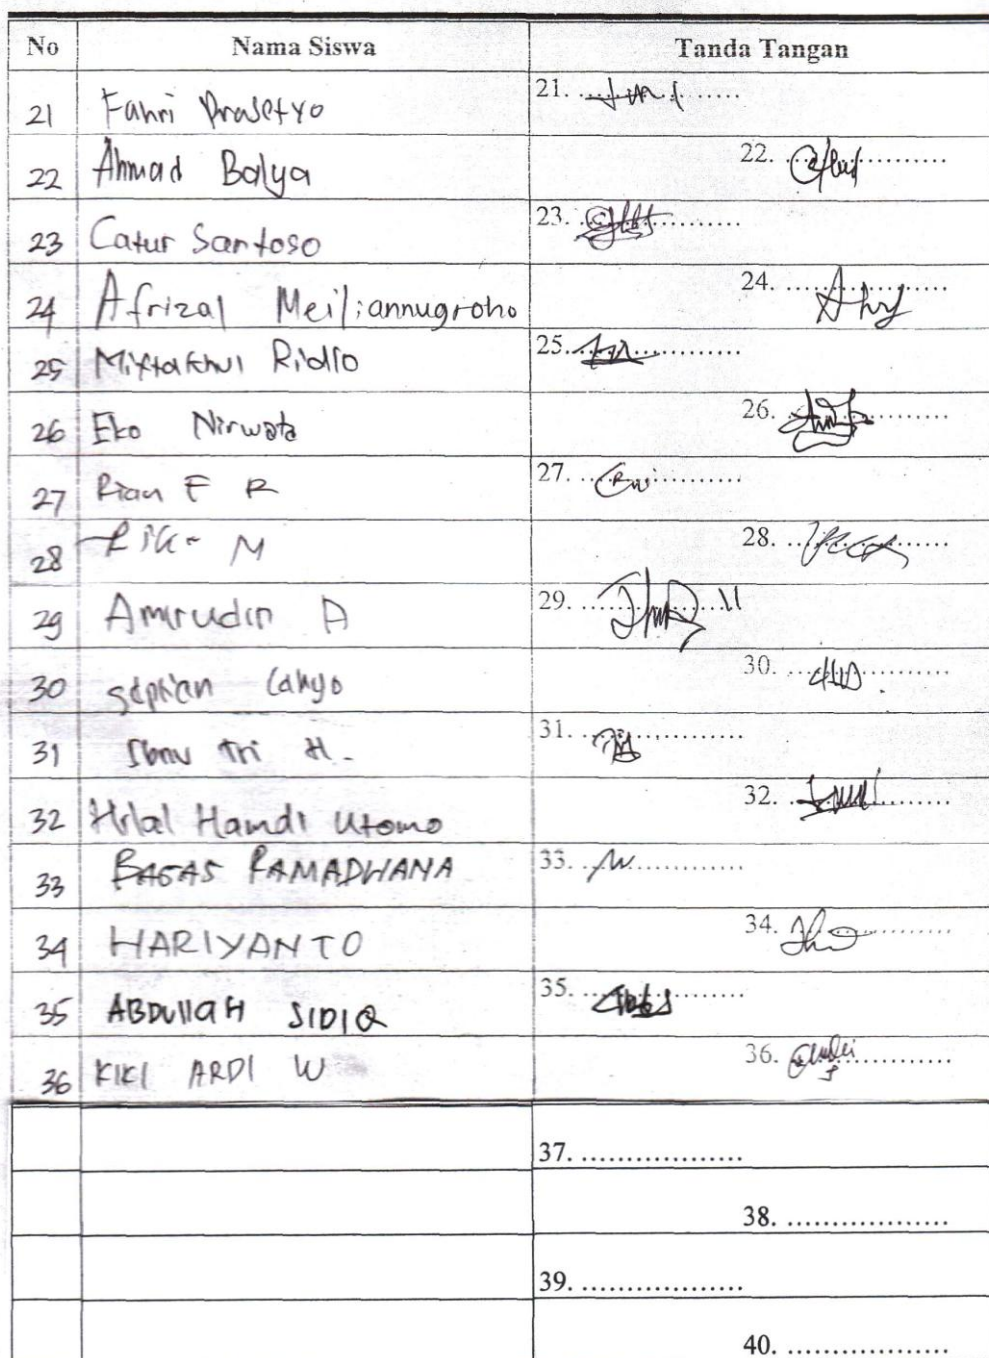 No Nama Siswa Tanda Tangan
21 Fahri Prasetyo 21. ..................
22 Ahmad Balya 22. ..................
23 Catur Santoso 23. ..................
24 Afrizal Meiliannugroho 24. ..................
25 Miftakhul Ridlo 25. ..................
26 Eko Nirwata 26. ..................
27 Rian F R 27. ..................
28 M 28. ..................
29 Amirudin A 29. ..................
30 Septian Cahyo 30. ..................
31 Ibnu Tri H. 31. ..................
32 Hilal Hamdi Utomo 32. ..................
33 BAGAS RAMADHANA 33. ..................
34 HARIYANTO 34. ..................
35 ABDUllaH SIDIQ 35. ..................
36 KIKI ARDI W 36. ..................
37. ..................
38. ..................
39. ..................
40. ..................